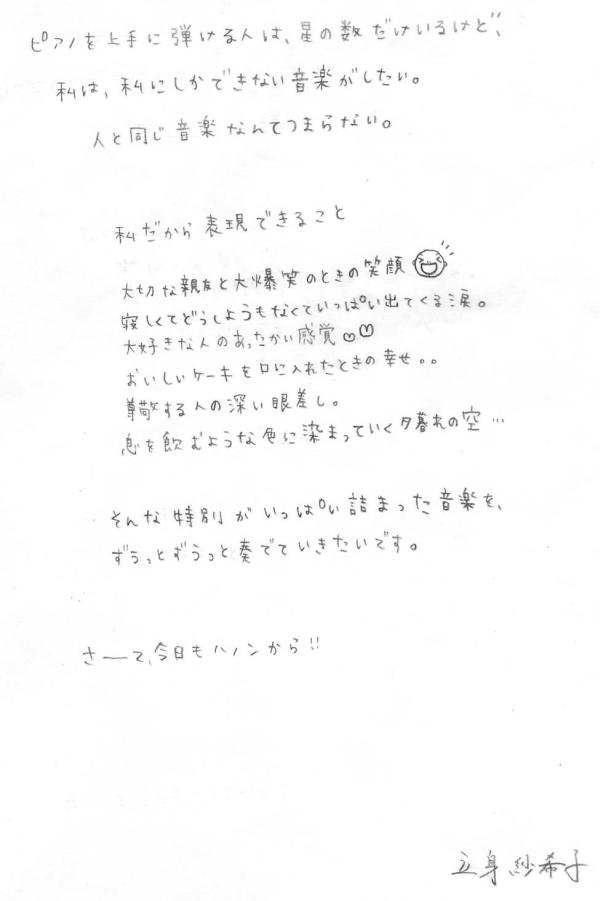 ピアノを上手に弾ける人は、星の数だけいるけど、
私は、私にしかできない音楽がしたい。
人と同じ音楽なんてつまらない。
私だから表現できること
大切な親友と大爆笑のときの笑顔
寂しくてどうしようもなくていっぱい出てくる涙。
大好きな人のあったかい感覚♡♡
おいしいケーキを口に入れたときの幸せ。。
尊敬する人の深い眼差し。
息を飲むような色に染まっていく夕暮れの空…
そんな特別がいっぱい詰まった音楽を、
ずぅっとずぅっと奏でていきたいです。
さーて、今日もハノンから!!
立身紗希子